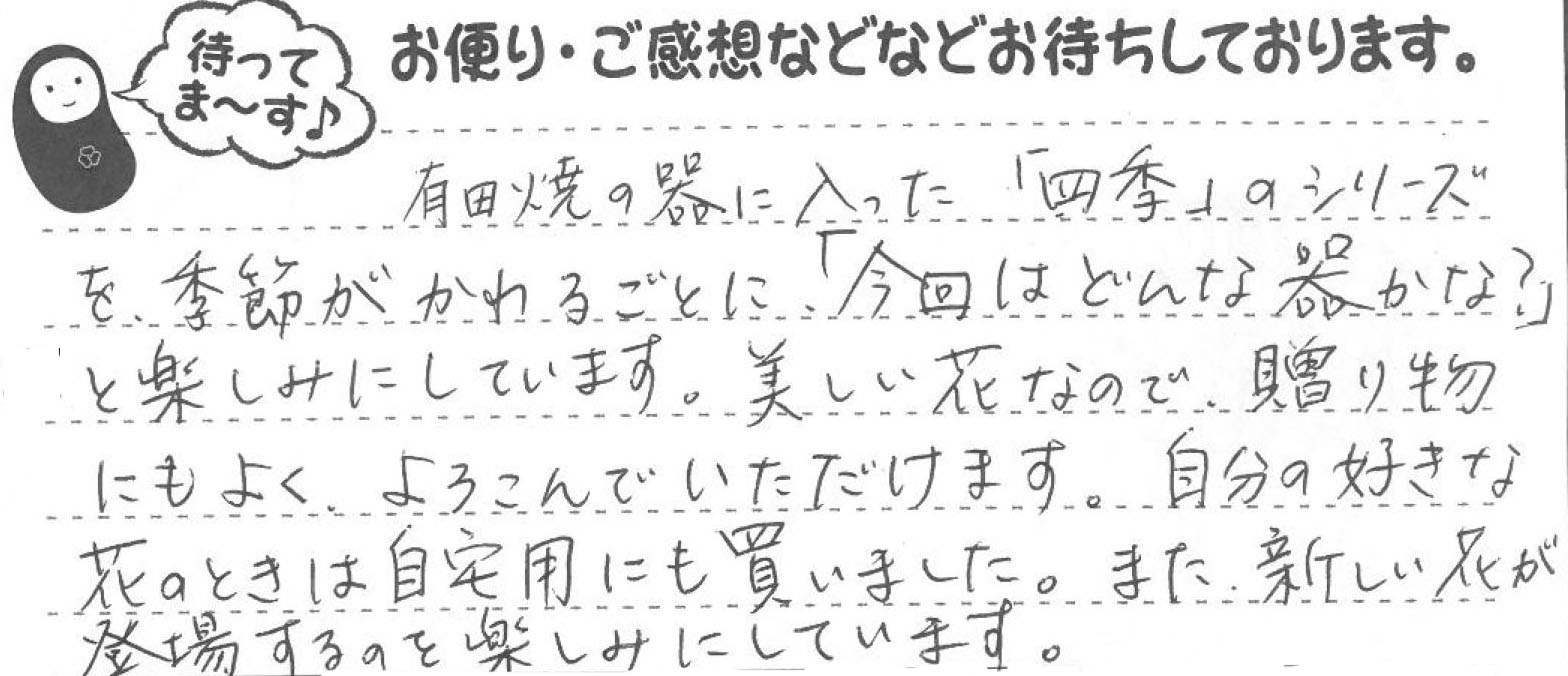 待って
ま〜す♪
お便り・ご感想などなどお待ちしております。
有田焼の器に入った「四季」のシリーズ
を、季節がかわるごとに、「今回はどんな器かな?」
と楽しみにしています。美しい花なので、贈り物
にもよく、よろこんでいただけます。自分の好きな
花のときは自宅用にも買いました。また、新しい花が
登場するのを楽しみにしています。